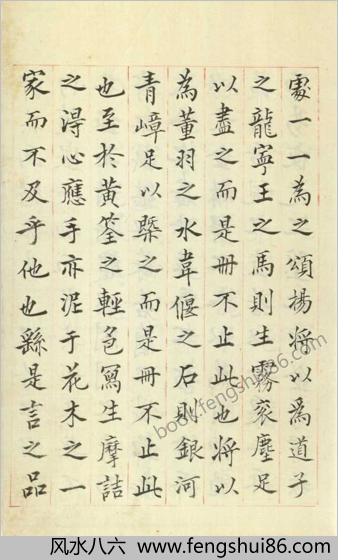 處一一為之頌揚將以爲道子
之龍寧王之馬則生霧衮塵足
以盡之而是冊不止此也將以
為董羽之水韋偃之石則銀河
青嶂足以槩之而是冊不止此
也至於黃筌之輕色寫生摩詰
之淂心應手亦泥于花木之一
家而不及乎他也繇是言之品
book.fengshui86.com
风水八六 www.fengshui86.com